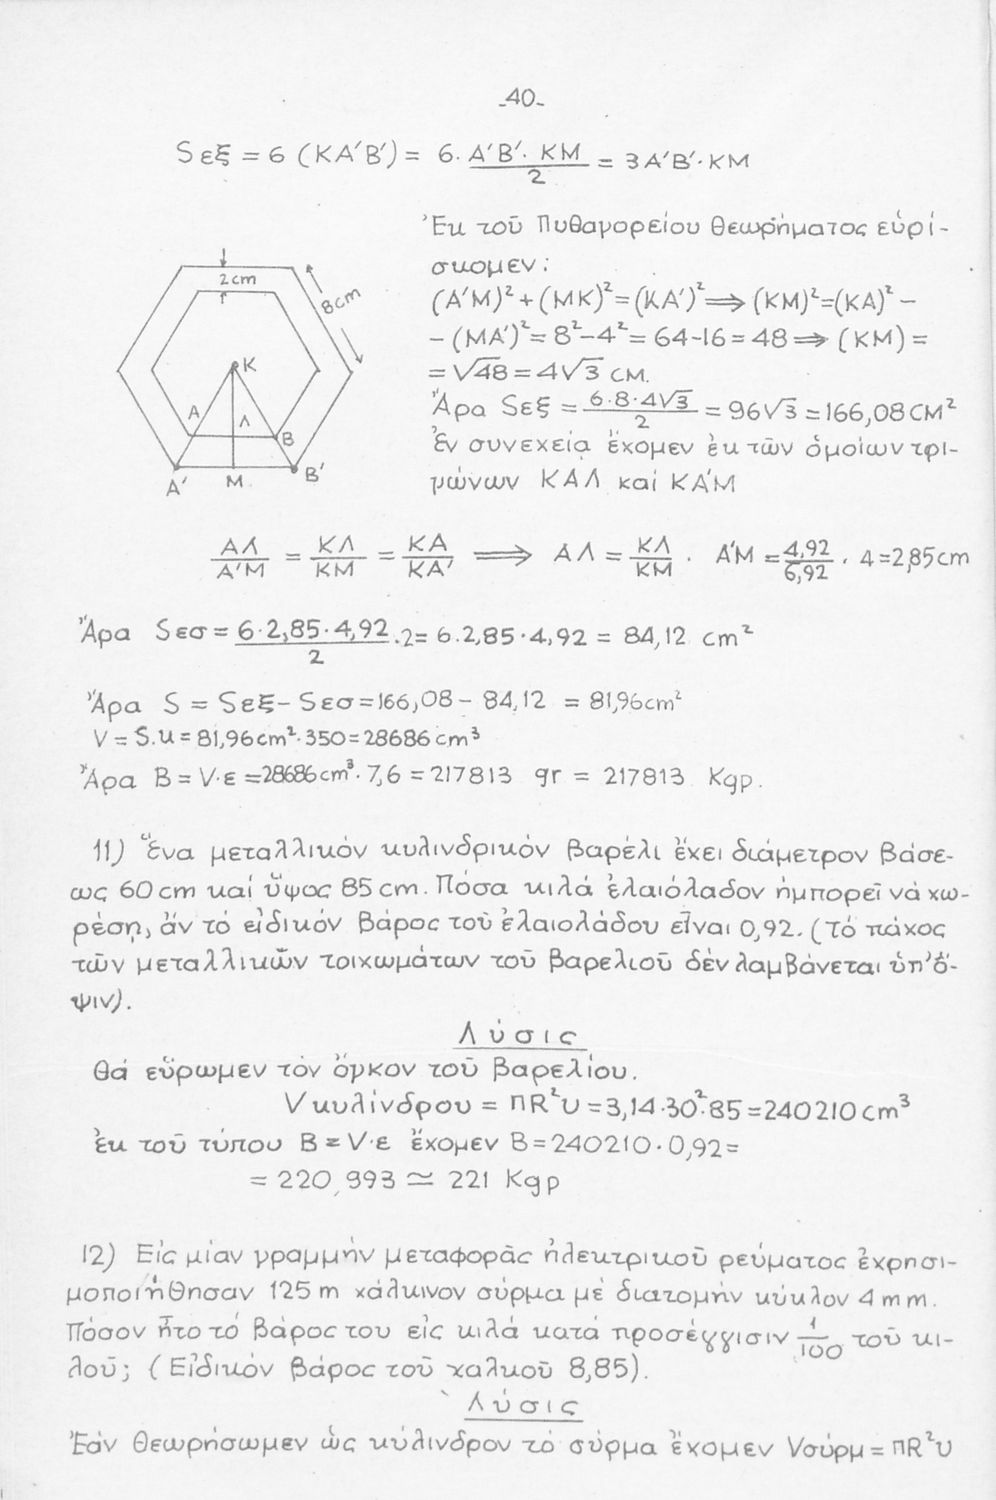 -40-
Sεξ = 6 (ΚΑ΄Β΄) = 6· Α΄Β΄·ΚΜ / 2 = 3Α΄Β΄·ΚΜ
Ἐκ τοῦ Πυθαγορείου Θεωρήματος εὑρί-
σκομεν:
(Α΄Μ)²+(ΜΚ)²=(ΚΑ΄)²⟹(ΚΜ)²=(ΚΑ)²-
-(ΜΑ΄)²=8²-4²=64-16=48⟹(ΚΜ)=
=√48=4√3 cm.
Ἄρα Sεξ = 6·8·4√3 / 2 = 96√3 =166,08cm²
Ἐν συνεχείᾳ ἔχομεν ἐκ τῶν ὁμοίων τρι-
γώνων ΚΑΛ καί ΚΑ΄Μ
2cm
8cm
Κ
Α
Λ
Β
Α΄
Μ
Β΄
ΑΛ / Α΄Μ = ΚΛ / ΚΜ = ΚΑ / ΚΑ΄ ⟹ ΑΛ = ΚΛ / ΚΜ · Α΄Μ = 4,92 / 6,92 · 4=2,85cm
Ἄρα Sεσ = 6·2,85·4,92 / 2 ·2= 6·2,85·4,92 = 84,12 cm²
Ἄρα S = Sεξ - Sεσ =166,08 - 84,12 = 81,96cm²
V = S.υ = 81,96cm²·350=28686cm³
Ἄρα Β = V·ε =28686cm³·7,6 = 217813 gr = 217813 Kgp.
11) Ἕνα μεταλλικόν κυλινδρικόν βαρέλι ἔχει διάμετρον βάσε-
ως 60cm καί ὕψος 85cm. Πόσα κιλά ἐλαιόλαδον ἠμπορεῖ νά χω-
ρέσῃ, ἄν τό εἰδικόν βάρος τοῦ ἐλαιολάδου εἶναι 0,92. (Τό πάχος
τῶν μεταλλικῶν τοιχωμάτων τοῦ βαρελιοῦ δέν λαμβάνεται ὑπ'ὄ-
ψιν).
Λύσις
Θά εὕρωμεν τόν ὄγκον τοῦ βαρελίου.
Vκυλίνδρου = ΠR²υ =3,14·30²·85=240210cm³
ἐκ τοῦ τύπου Β = V·ε ἔχομεν Β=240210·0,92=
= 220,993 ≃ 221 Kgp
12) Εἰς μίαν γραμμήν μεταφορᾶς ἠλεκτρικοῦ ρεύματος ἐχρησι-
μοποιήθησαν 125m χάλκινον σύρμα μέ διατομήν κύκλον 4mm.
Πόσον ἦτο τό βάρος του εἰς κιλά κατά προσέγγισιν 1/100 τοῦ κι-
λοῦ; (Εἰδικόν βάρος τοῦ χαλκοῦ 8,85).
Λύσις
Ἐάν θεωρήσωμεν ὡς κύλινδρον τό σύρμα ἔχομεν Vσύρμ = ΠR²υ